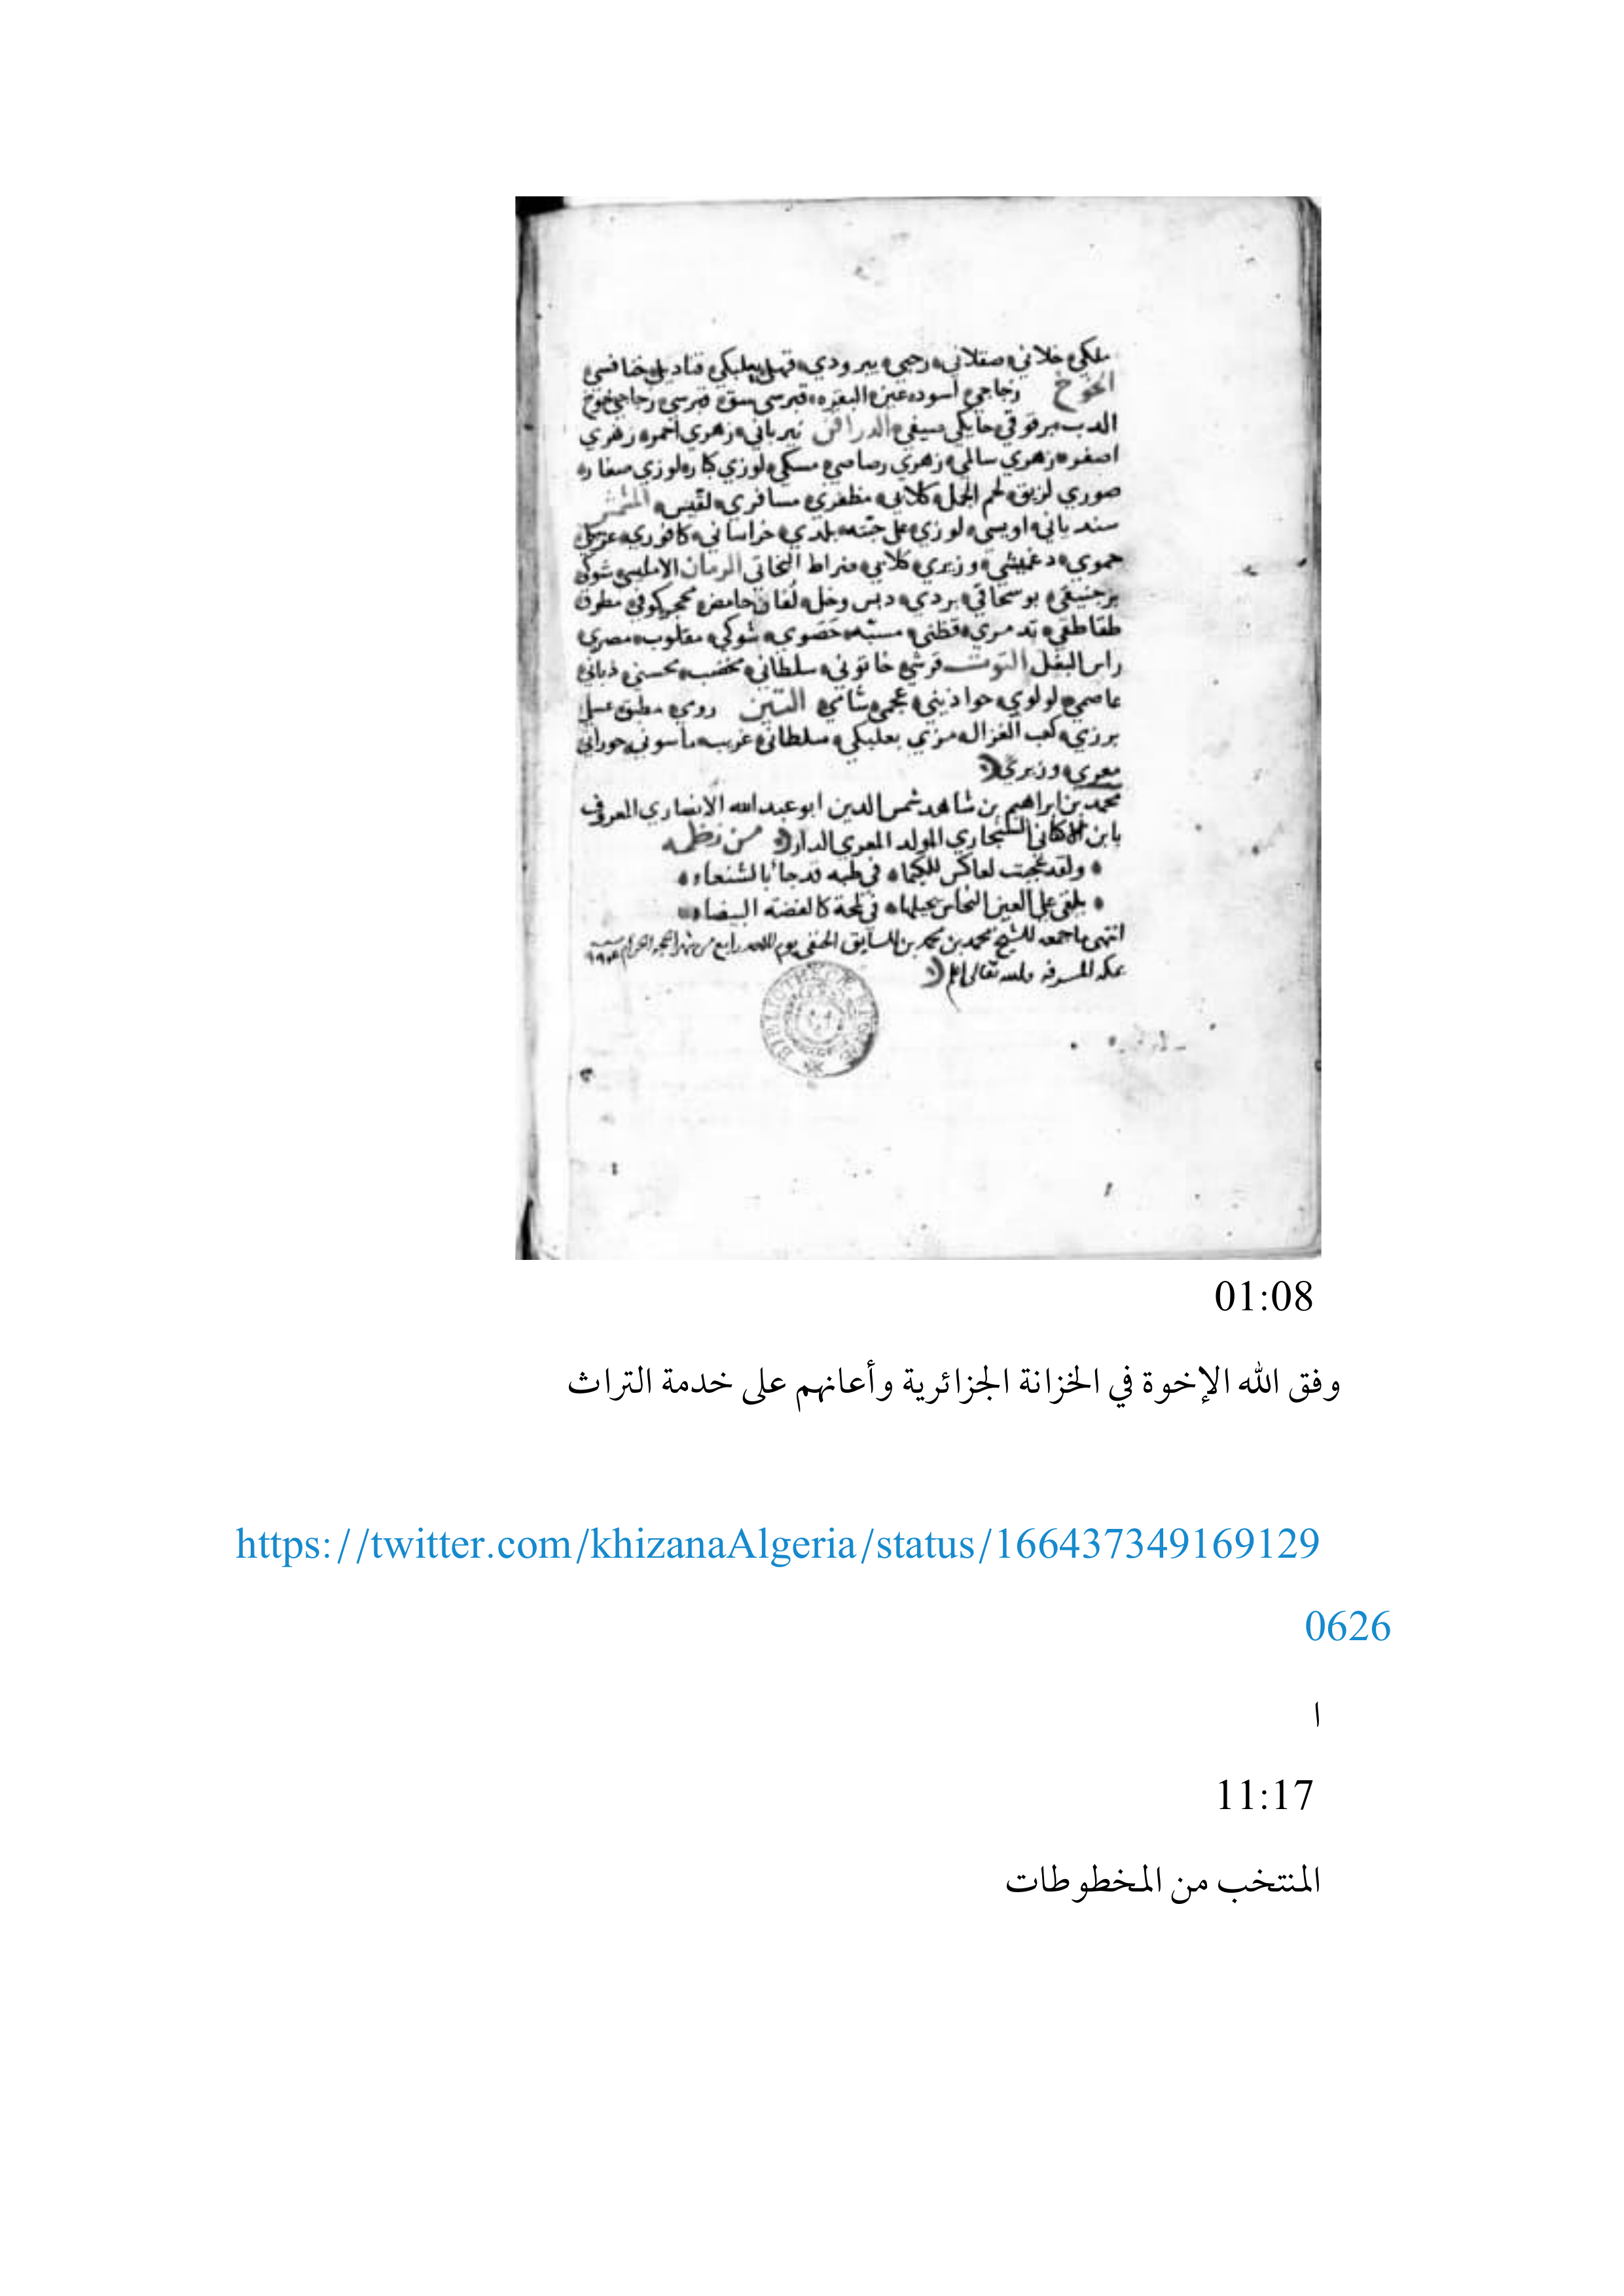 ملكي خلاني صقلاني رحبي يبرودي قهلي بعلبكي قناديلي خنافسي
الخوخ زجاجي اسود عين البقره قبرسي قبرسي زجاجي خوخ
الدب برقوقي حايكي صيفي الدراقن نيرباني زهري احمر زهري
اصفر زهري سالمي زهري رصاصي مسكي لوزي كبار لوزي صغار
صوري لزيق لحم الجمل كلابي مظفري مسافري لقيس المشمش
سندياني اويسي لوزي بلدي خراساني كافوري
حموي دغمشي وزيري كلابي الرمان الامليسي شوكي
بردي دبس وخل لفان حامض كوفي مطوق
طقاطقي تدمري قطني شوكي مقلوب مصري
راس البغل التوت قرشي خاتوني سلطاني مخضب محسني ذباني
عاصمي لولوي عجمي شامي التين رومي
برزي كعب الغزال مزي بعلبكي سلطاني غريب ماسوني حوراني
معري وزيري
محمد بن ابراهيم بن شاهد شمس الدين ابو عبد الله الانصاري المعروف
بابن الاكفاني السنجاري المولد المصري الدار من نظمه
ولقد عجبت لعاكس للكيمياء في طبه قد جاء بالشنعاء
يلقي على العين النحاس يحيلها في لمحة كالفضة البيضاء
انتهى ما جمعه الشيخ محمد بن محمد بن السابق الحنفي يوم رابع من شهر
بمكه المشرفه والله تعالى اعلم
01:08
وفق الله الإخوة في الخزانة الجزائرية وأعانهم على خدمة التراث
https://twitter.com/khizanaAlgeria/status/166437349169129
0626
ا
11:17
المنتخب من المخطوطات